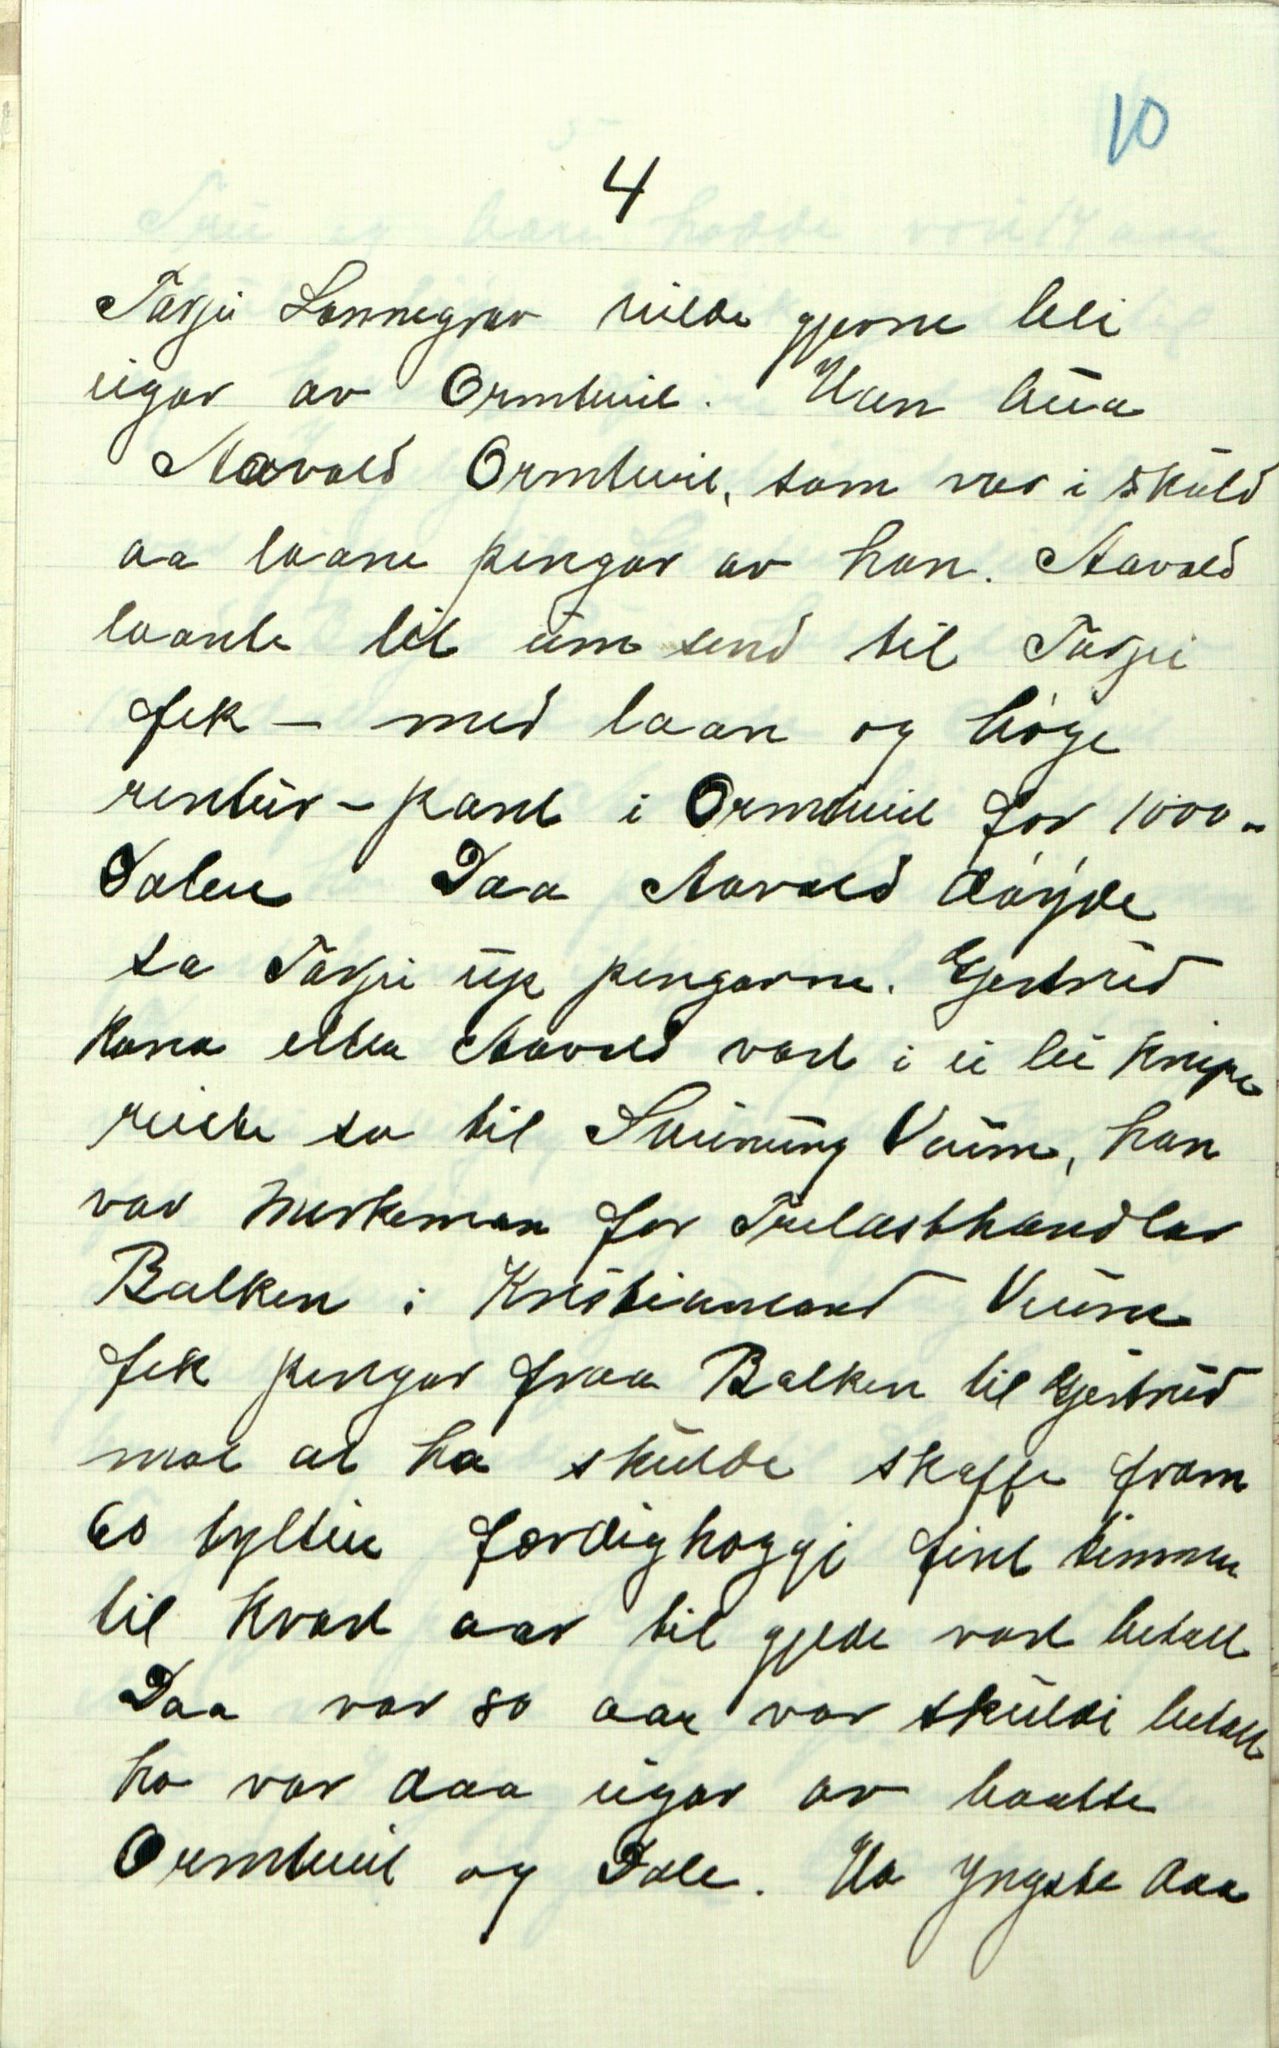 10
4
Tarjei Lonnegrav vilde gjerne bli
eigar av Ormtveit. Han bua
Aavold Ormtveit, som var i skuld
aa laane pengar av han. Aavold
laante lit um send til Tarjei
fek – med laan og höge
rentur – pant i Ormtveit for 1000 –
Daler Daa Aavold döyde
sa Tarjei up pengarne. Gjertrud
Kona etter Aavold vart i ei lei Knipe
reiste so til Sveinung Veum, han
var Merkeman for Trelasthandlar
Balken i Kristiansand Veum
fek pengar fraa Balken til Gjertrud
mot at ho skulde skaffe fram
60 tylftir færdighoggi fint timmer
til kvart aar til gjelde vart betalt
Daa var so aar var skuldi betalt
ho var daa eigar av baatte
Ormtveit og Dale. Ho yngste Aaa